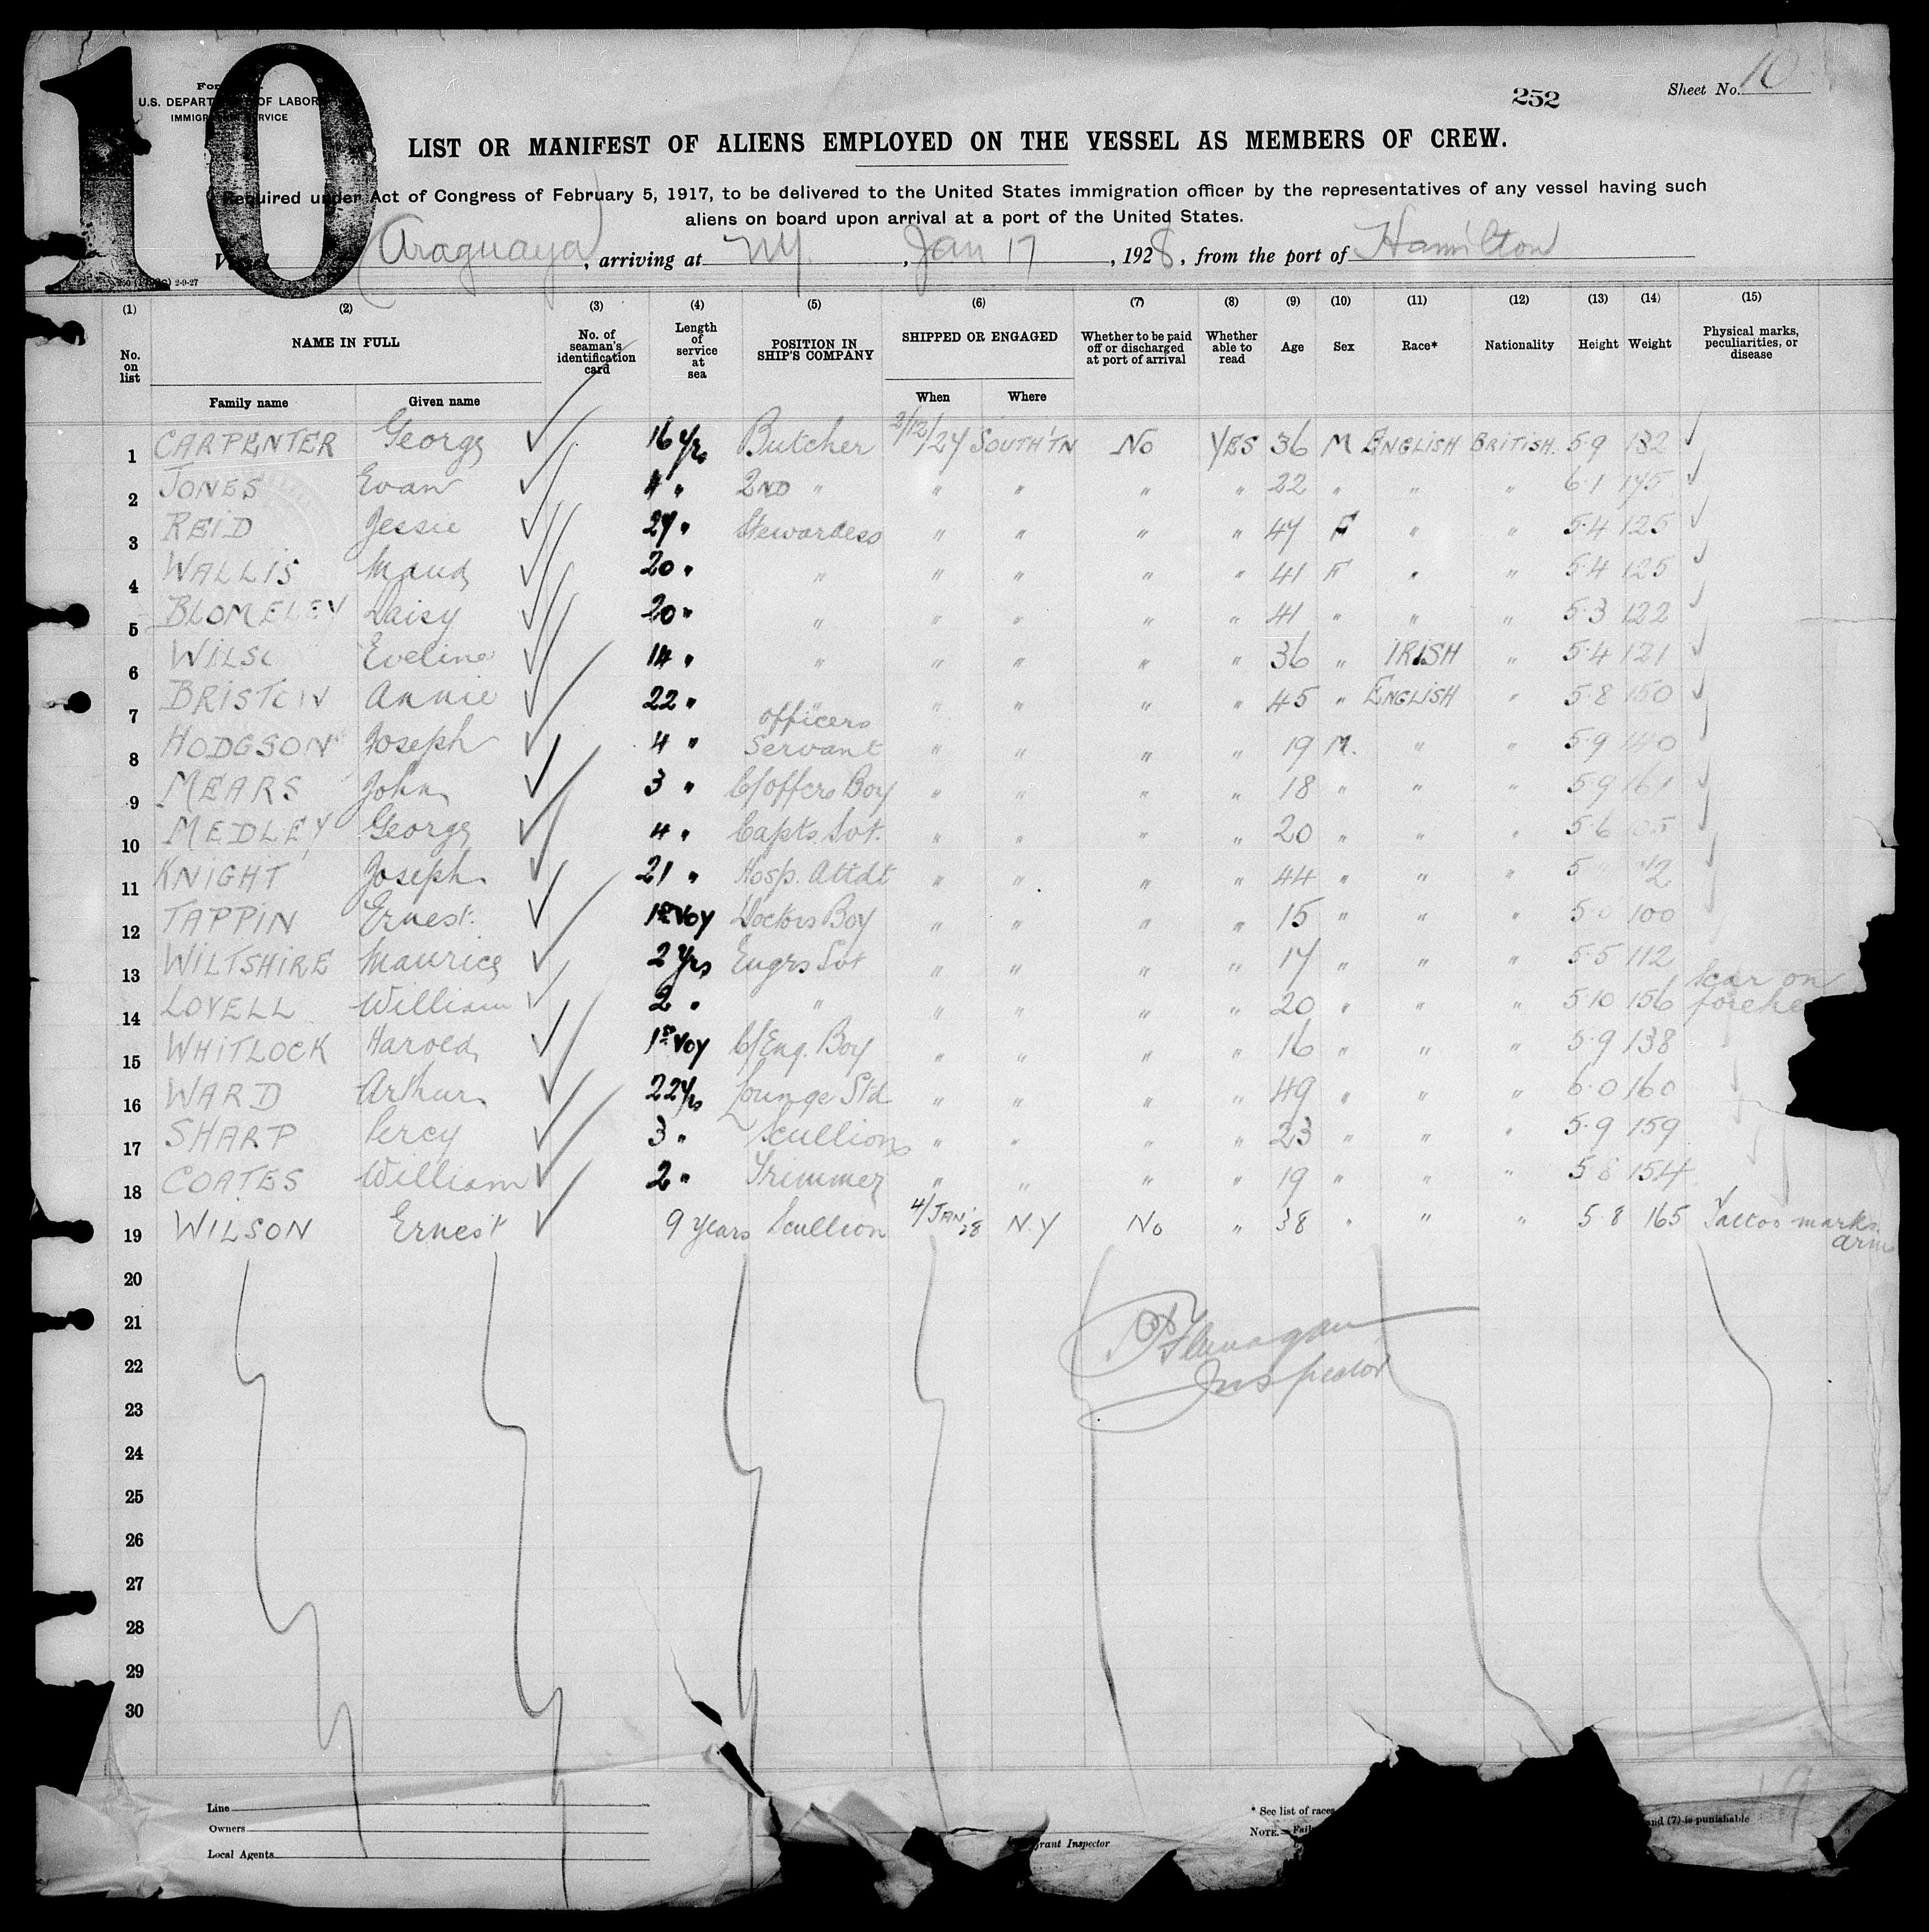 10
U.S. DEPARTMENT OF LABOR
IMMIGRATION SERVICE
252
Sheet No. 10
LIST OR MANIFEST OF ALIENS EMPLOYED ON THE VESSEL AS MEMBERS OF CREW.
Required under Act of Congress of February 5, 1917, to be delivered to the United States immigration officer by the representatives of any vessel having such
aliens on board upon arrival at a port of the United States.
Vessel Araguaya, arriving at NY., Jan 17, 1928, from the port of Hamilton
2-9-27
(1) (2) (3) (4) (5) (6) (7) (8) (9) (10) (11) (12) (13) (14) (15)
No. on list NAME IN FULL No. of seaman's identification card Length of service at sea POSITION IN SHIP'S COMPANY SHIPPED OR ENGAGED Whether to be paid off or discharged at port of arrival Whether able to read Age Sex Race* Nationality Height Weight Physical marks, peculiarities, or disease
Family name Given name When Where
1 CARPENTER George ✓ 16 yrs Butcher 2/12/27 SOUTH'TN No YES 36 M ENGLISH BRITISH. 5·9 182 ✓
2 JONES Evan ✓ 4 " 2ND " " " " " 22 " " " 6·1 175 ✓
3 REID Jessie ✓ 27 " Stewardess " " " " 47 F " " 5·4 125 ✓
4 WALLIS Maud ✓ 20 " " " " " " 41 F " " 5·4 125 ✓
5 BLOMELEY Daisy ✓ 20 " " " " " " 41 " " " 5·3 122 ✓
6 WILSO Eveline ✓ 14 " " " " " " 36 " IRISH " 5·4 121 ✓
7 BRISTOW Annie ✓ 22 " " " " " " 45 " ENGLISH " 5·8 150 ✓
8 HODGSON Joseph ✓ 4 " officers Servant " " " " 19 M. " " 5·9 140 ✓
9 MEARS John ✓ 3 " C/offers Boy " " " " 18 " " " 5·9 161 ✓
10 MEDLEY George ✓ 4 " Capts. Svt. " " " " 20 " " " 5·6 ✓
11 KNIGHT Joseph ✓ 21 " Hosp. Attdt " " " " 44 " " " 5 ✓
12 TAPPIN Ernest. ✓ 1st Voy Doctors Boy " " " " 15 " " " 5·0 100 ✓
13 WILTSHIRE Maurice ✓ 2 yrs Engrs Svt " " " " 17 " " " 5·5 112
14 LOVELL William ✓ 2 " " " " " " 20 " " " 5·10 156 Scar on forehe
15 WHITLOCK Harold ✓ 1st Voy C/Eng. Boy " " " " 16 " " " 5·9 138
16 WARD Arthur ✓ 22 yrs Lounge Std " " " " 49 " " " 6·0 160
17 SHARP Percy ✓ 3 " Scullion " " " " 23 " " " 5·9 159
18 COATES William ✓ 2 " Trimmer " " " " 19 " " " 5·8 154
19 WILSON Ernest ✓ 9 years Scullion 4/JAN'28 N.Y No " 38 " " " 5·8 165 Tattoo marks arms
20
21
22
23
24
25
26
27
28
29
30
Flanagan
Inspector
Line
Owners
Local Agents
grant Inspector
* See list of races
NOTE.—Fail
and (7) is punishable